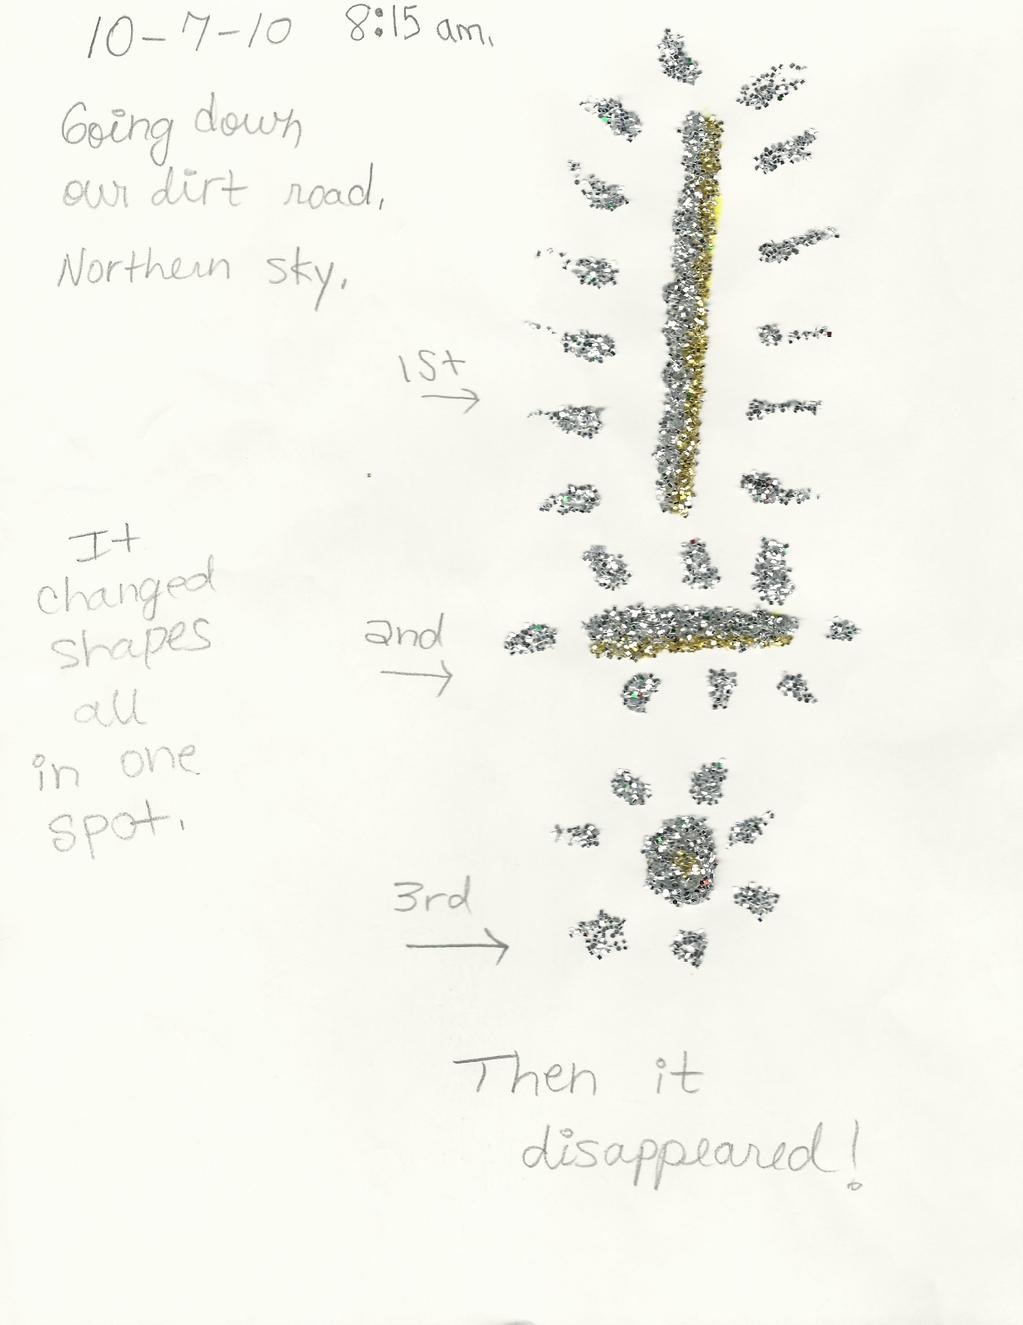 10-7-10 8:15 am.
Going down
our dirt road.
Northern sky.
1st
It
changed
shapes
all
in one
spot.
2nd
3rd
Then it
disappeared!